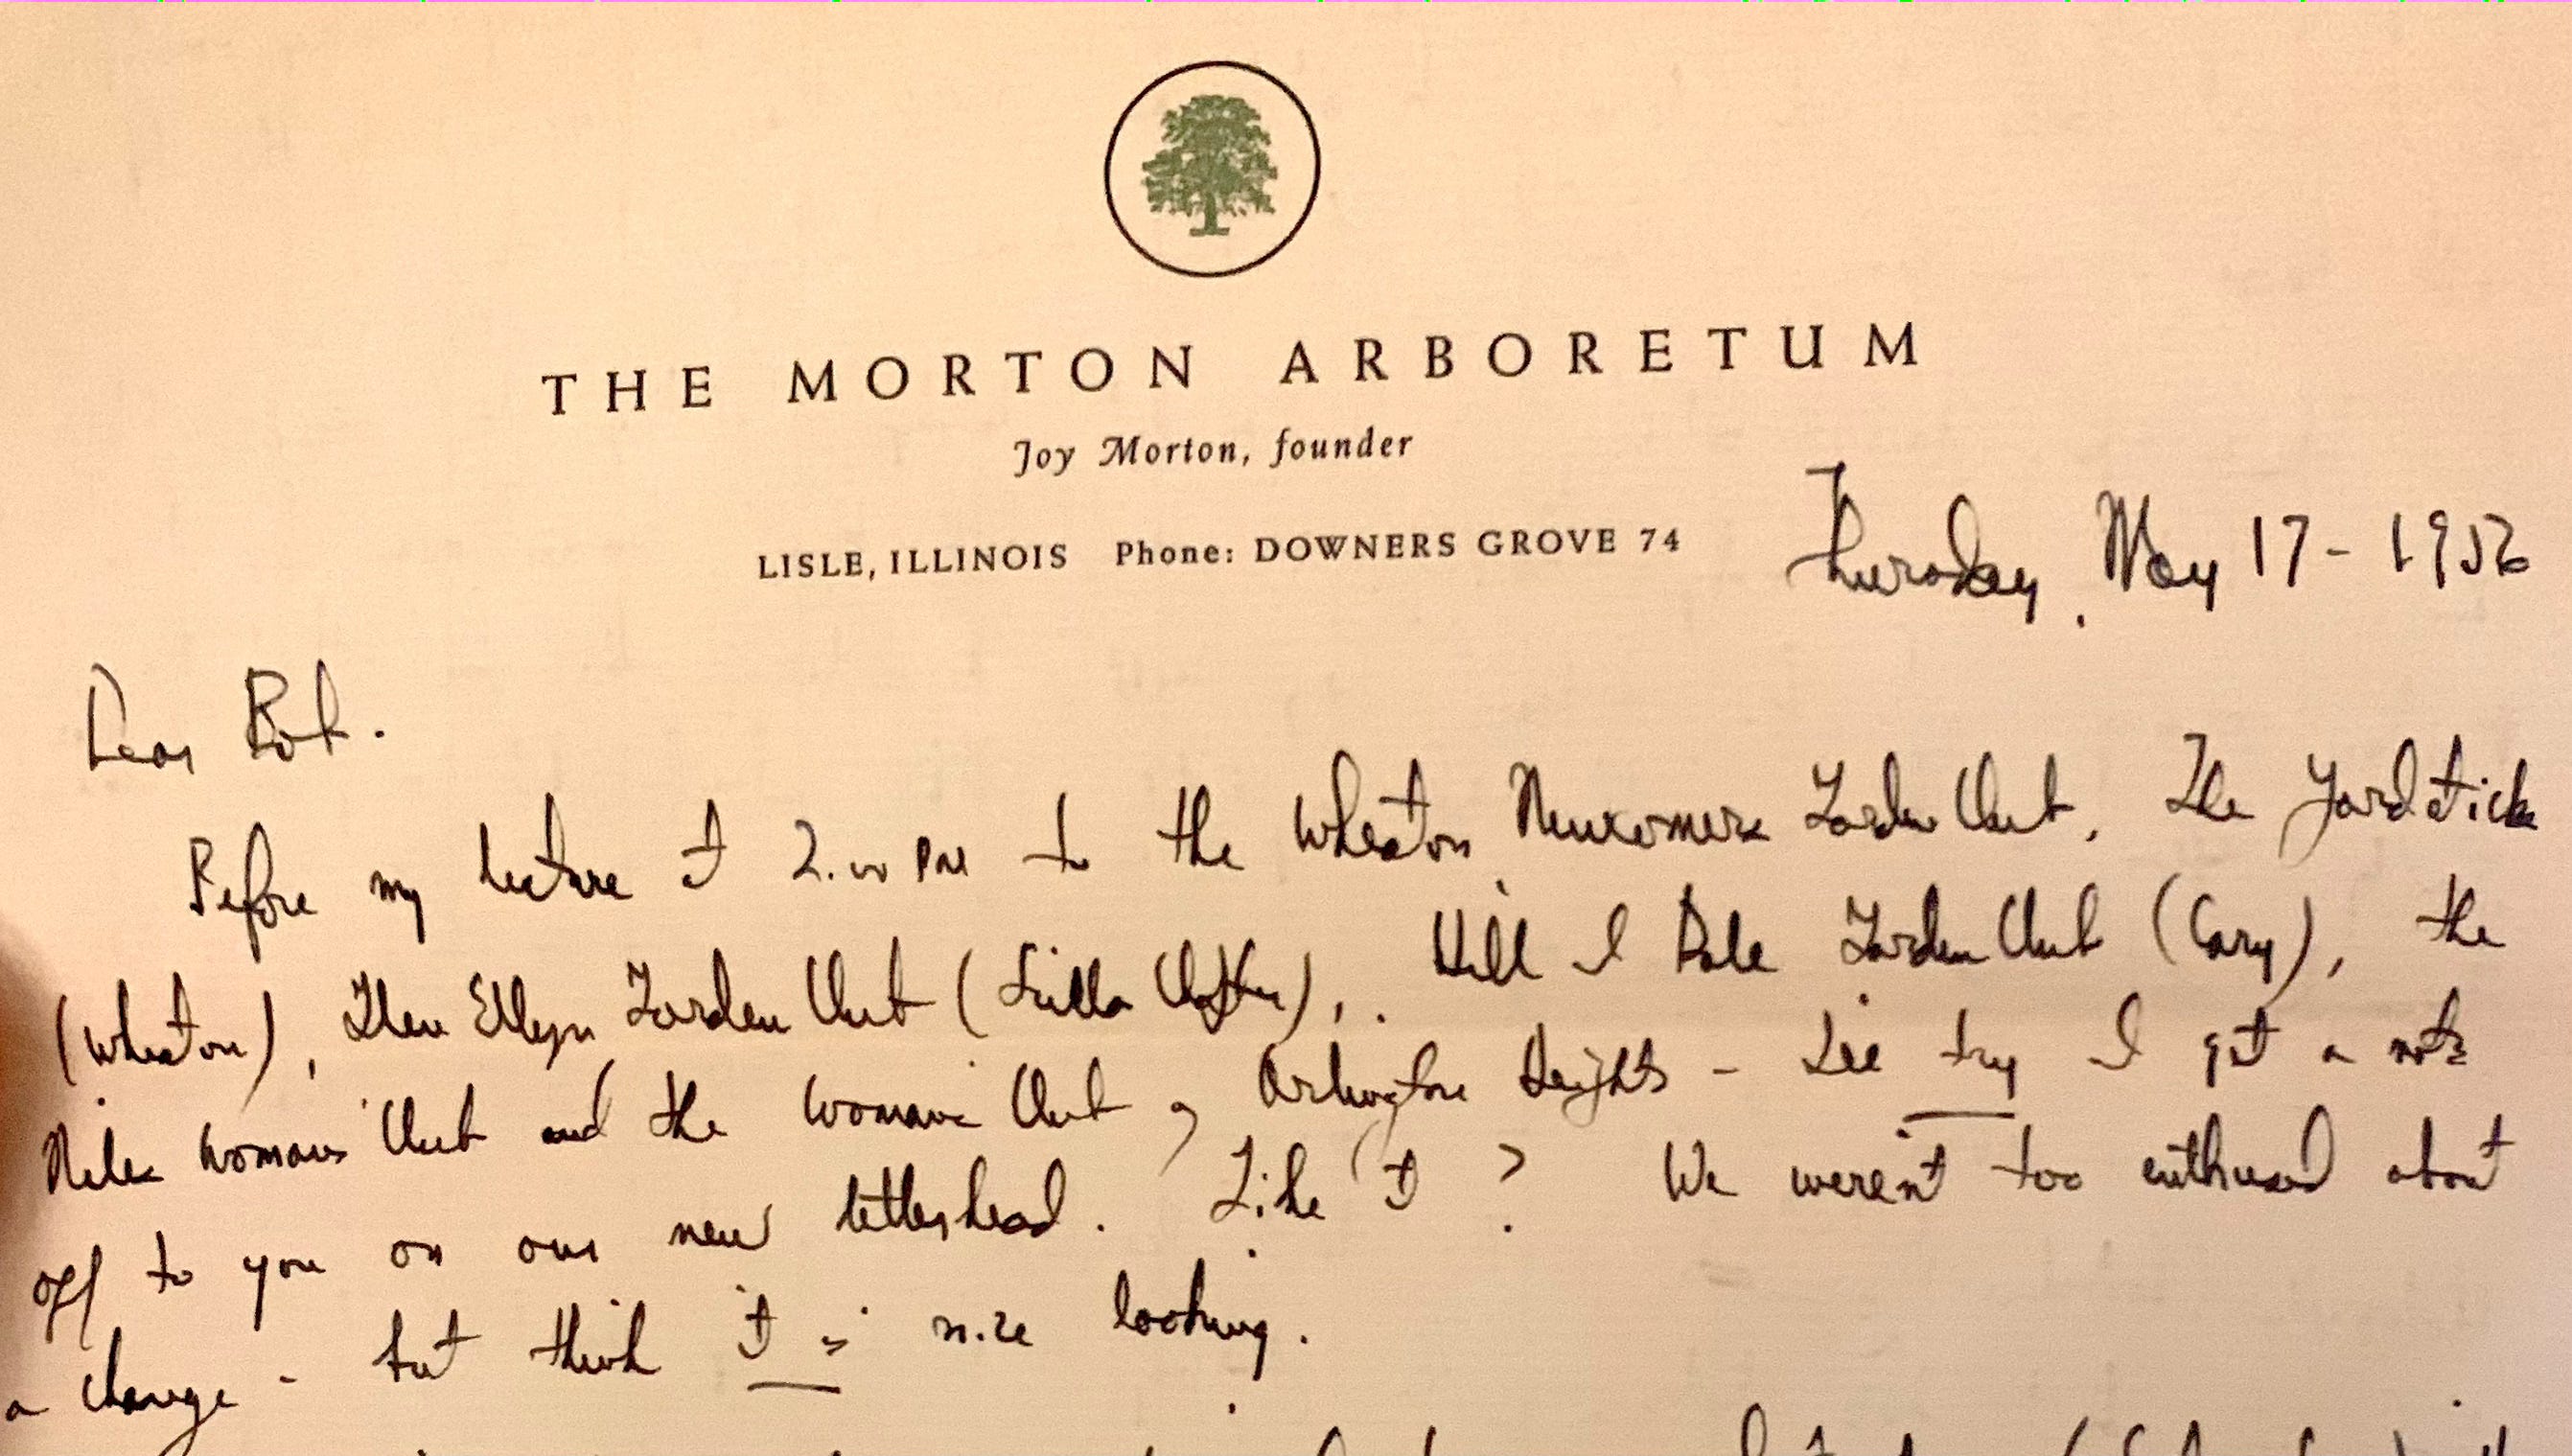 THE MORTON ARBORETUM
Joy Morton, founder
LISLE, ILLINOIS Phone: DOWNERS GROVE 74
Thursday, May 17 - 1956
Dear Bob.
Before my lecture at 2.00 PM to the Wheaton Newcomers Garden Club, The Yardstick
(Wheaton), Glen Ellyn Garden Club (Scilla Chapter), Hill & Dale Garden Club (Cary), the
Niles Womans Club and the Womans Club of Arlington Heights - I'll try & get a note
off to you on our new letterhead. Like it? We weren't too enthused about
a change - but think it is nice looking.